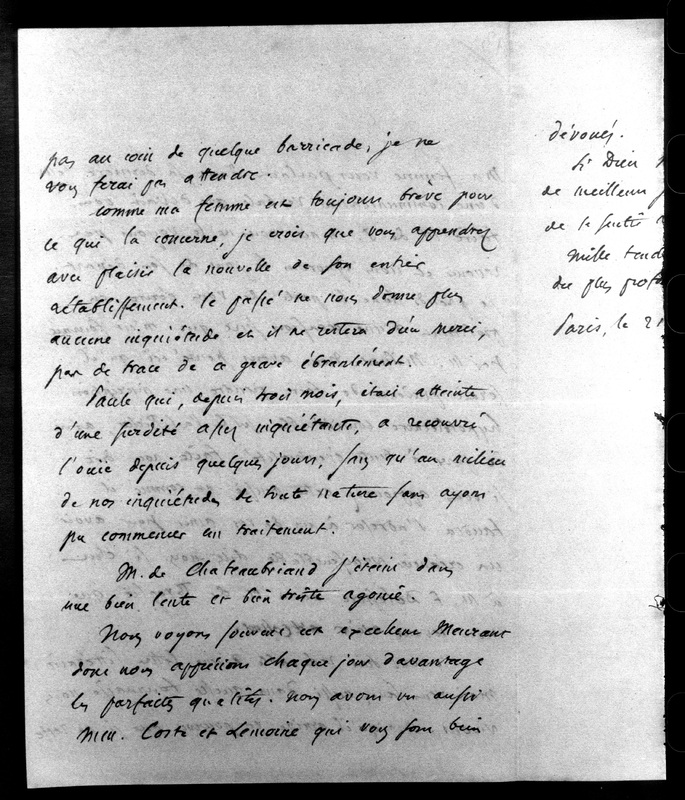 pas au coin de quelque barricade, je ne
vous ferai pas attendre.
comme ma femme est toujours brève pour
ce qui la concerne, je crois que vous apprendrez
avec plaisir la nouvelle de son entier
rétablissement. le passé ne nous donne plus
aucune inquiétude et il ne restera dieu merci,
pas de trace de ce grave ébranlement.
Paule qui, depuis trois mois, était atteinte
d'une surdité assez inquiétante, a recouvré
l'ouie depuis quelques jours, sans qu'au milieu
de nos inquiétudes de toute nature nous ayons
pu commencer un traitement.
M. de Chateaubriand s'éteint dans
une bien lente et bien triste agonie
Nous voyons souvent cet excellent Meurant
dont nous apprécions chaque jour davantage
les parfaites qualités. nous avons vu aussi
Mrs. Coste et Lemoine qui vous sont bien
dévoués.
Si Dieu
de meilleurs
de la santé
mille tend
du plus prof
Paris, le 21